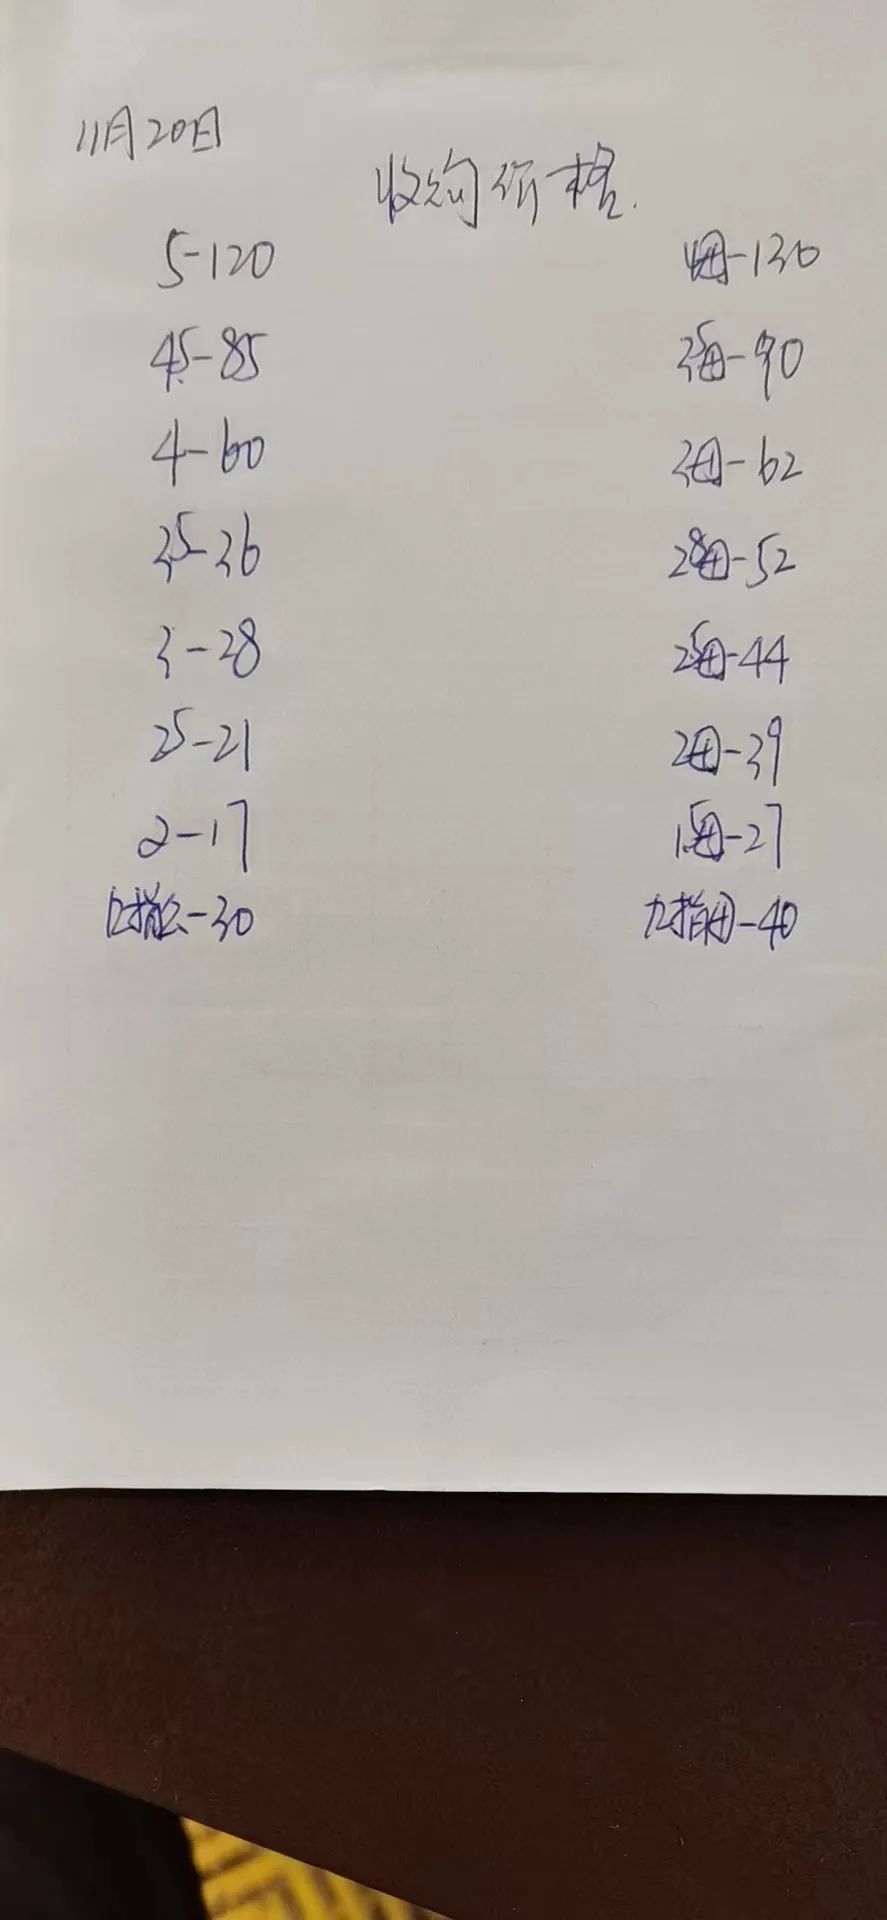 11月20日
收购价格.
5-120
45-85
4-60
35-36
3-28
25-21
2-17
-30
4母-130
35母-90
3母-62
28母-52
25母-44
2母-39
15母-27
九指母-40